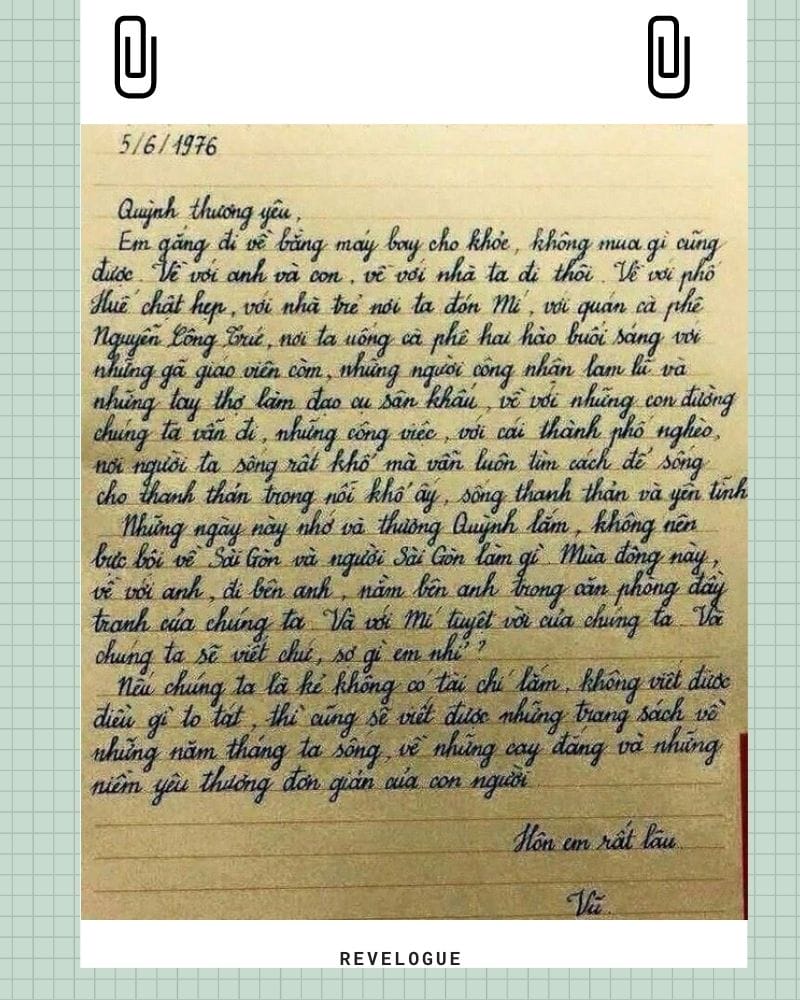 5/6/1976
Quỳnh thương yêu,
Em gắng đi về bằng máy bay cho khỏe, không mua gì cũng
được. Về với anh và con, về với nhà ta đi thôi. Về với phố
Huế chật hẹp, với nhà trẻ nơi ta đón Mí, với quán cà phê
Nguyễn Công Trứ, nơi ta uống cà phê hai hào buổi sáng với
những gã giáo viên còm, những người công nhân lam lũ và
những tay thợ làm đạo cụ sân khấu, về với những con đường
chúng ta vẫn đi, những công việc, với cái thành phố nghèo,
nơi người ta sống rất khổ mà vẫn luôn tìm cách để sống
cho thanh thản trong nỗi khổ ấy, sống thanh thản và yên tĩnh
Những ngày này nhớ và thương Quỳnh lắm, không nên
bực bội về Sài Gòn và người Sài Gòn làm gì. Mùa đông này,
về với anh, đi bên anh, nằm bên anh trong căn phòng đầy
tranh của chúng ta. Và với Mí tuyệt vời của chúng ta. Và
chúng ta sẽ viết chứ, sợ gì em nhỉ?
Nếu chúng ta là kẻ không có tài chi lắm, không viết được
điều gì to tát, thì cũng sẽ viết được những trang sách về
những năm tháng ta sống, về những cay đắng và những
niềm yêu thương đơn giản của con người
Hôn em rất lâu
Vũ.
REVELOGUE